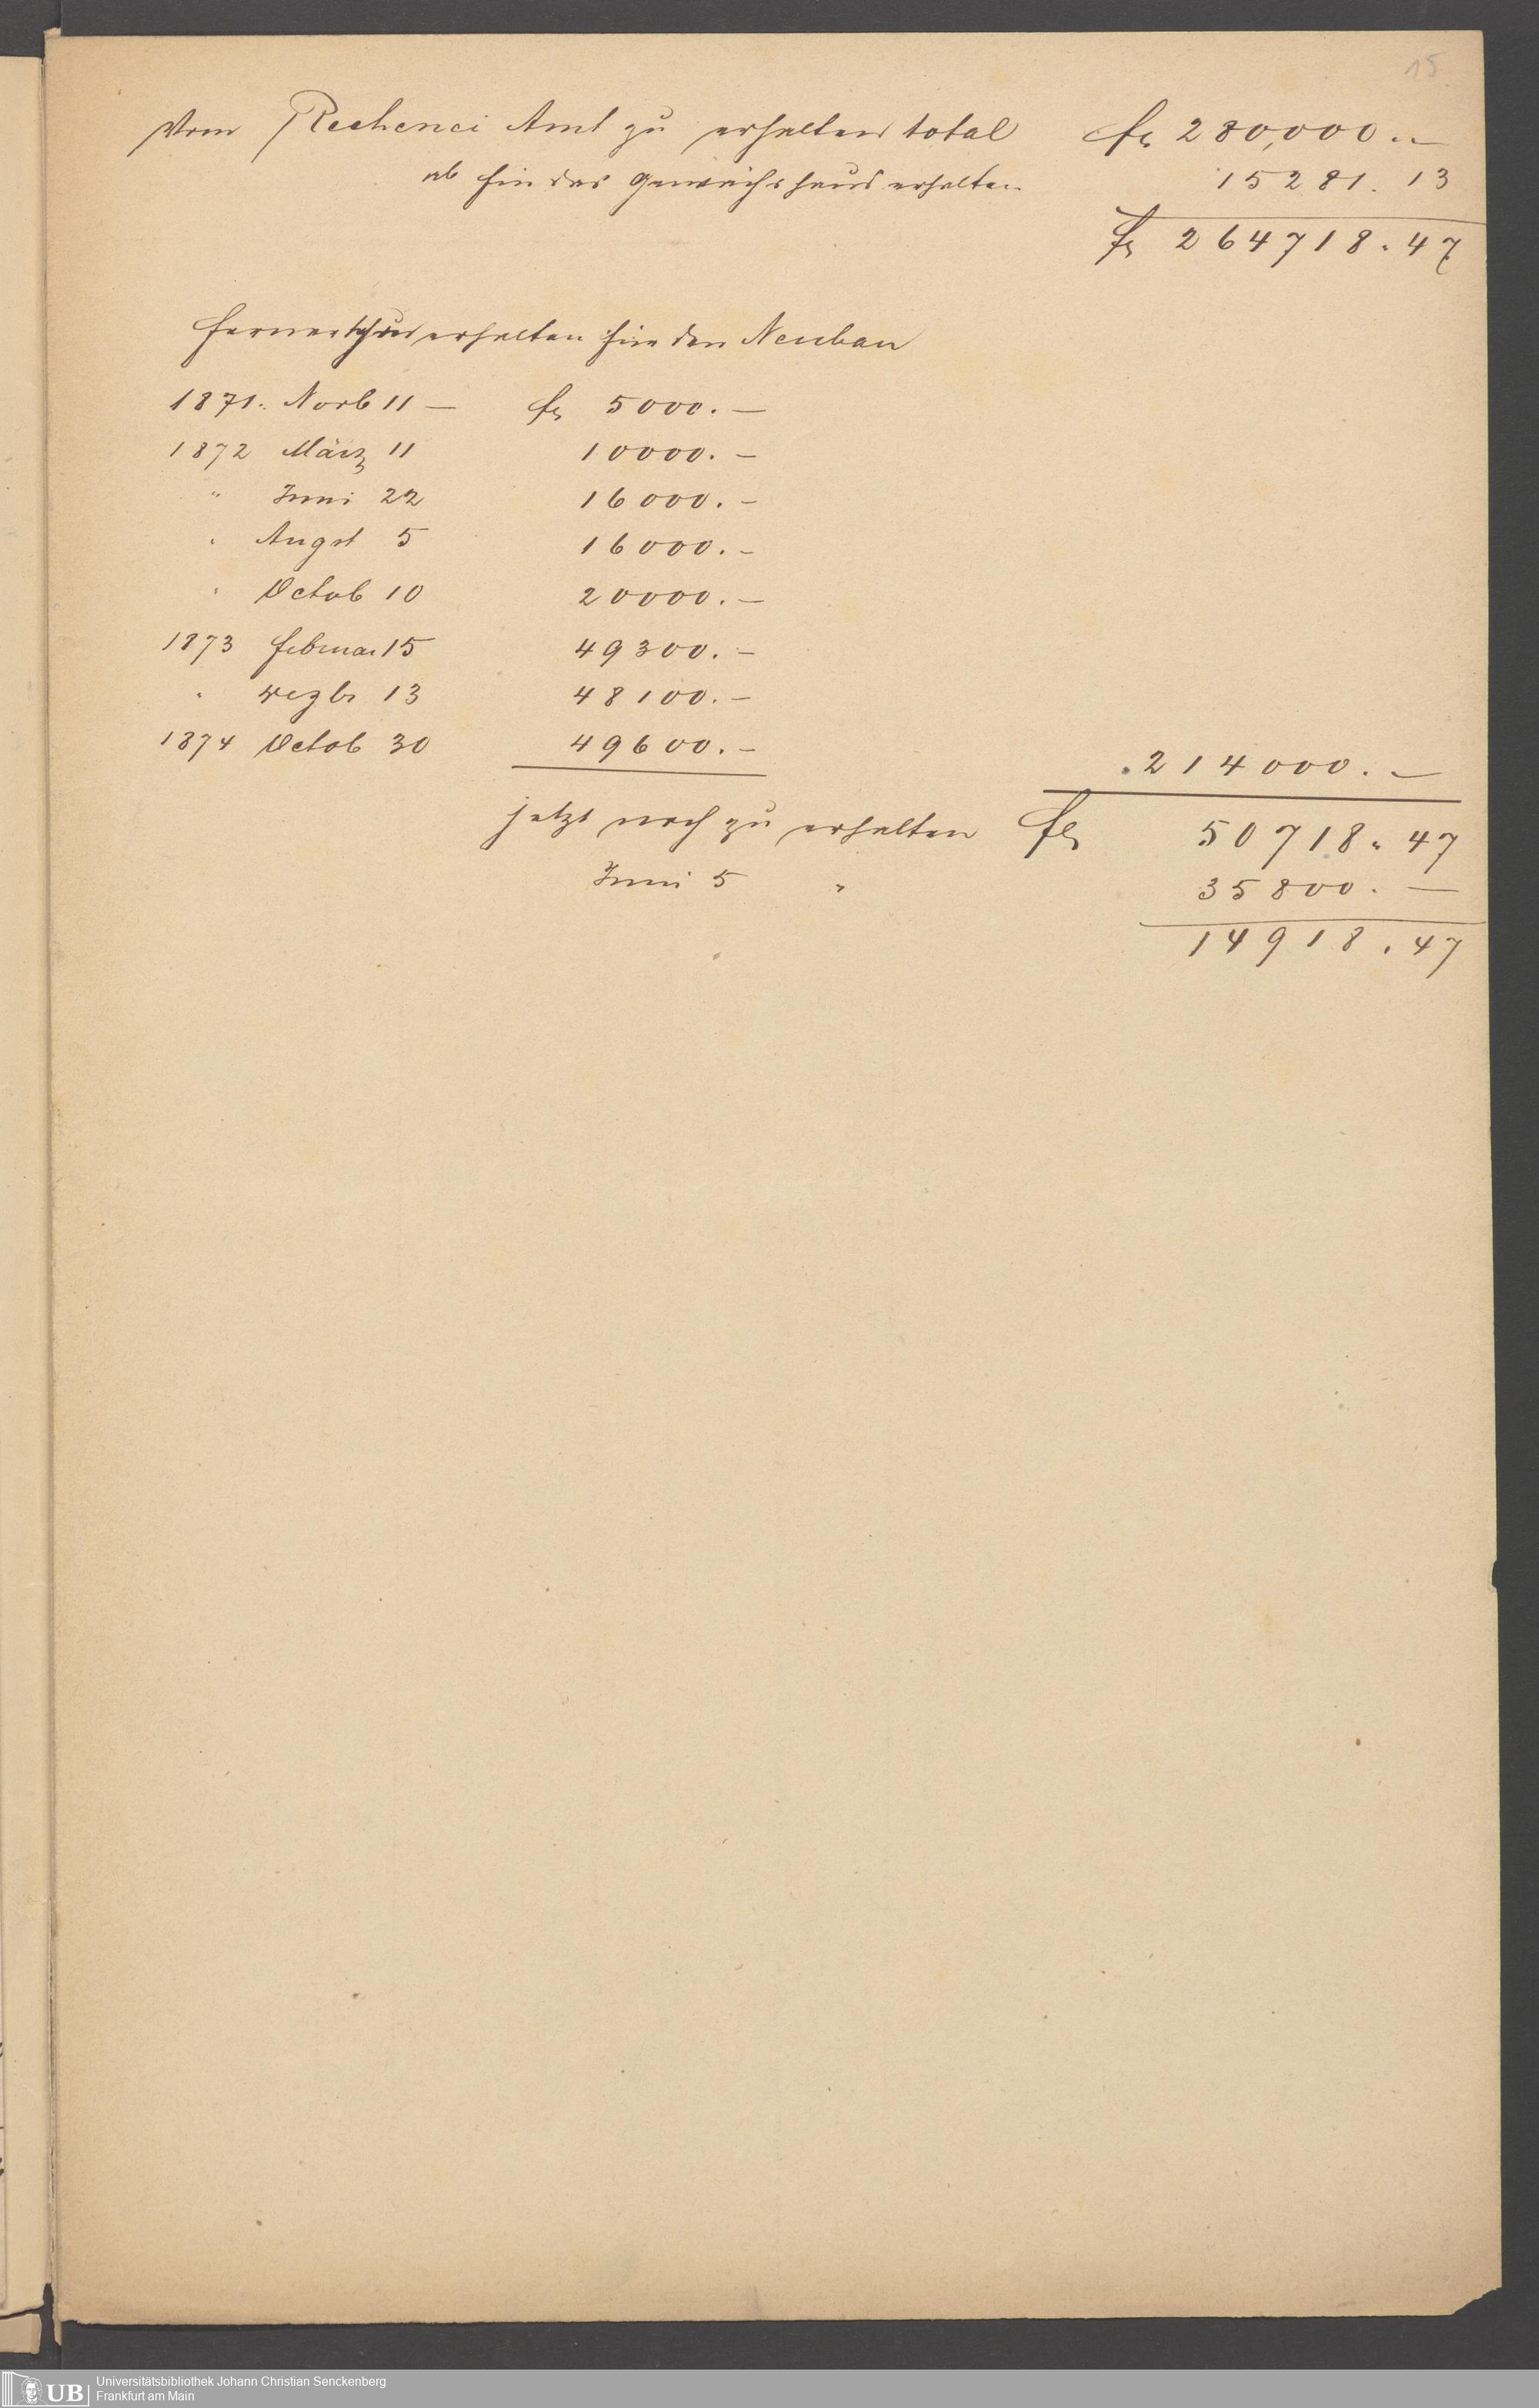 15
Vom Rechenei Amt zu erhalten total fl 280,000.—
ab für das Gewächshaus erhalten 15281. 13
fl 264718. 47
ferner erhalten für den Neubau
1871. Novb 11 — fl 5000. —
1872 März 11 10000. —
" Juni 22 16000. —
" Augst 5 16000. —
" Octob 10 20000. —
1873 Februar 15 49300. —
" Dezbr 13 48100. —
1874 Octob 30 49600. —
214000. —
jetzt noch zu erhalten fl 50718. 47
Juni 5 " 35800. —
14918. 47
UB Universitätsbibliothek Johann Christian Senckenberg
Frankfurt am Main